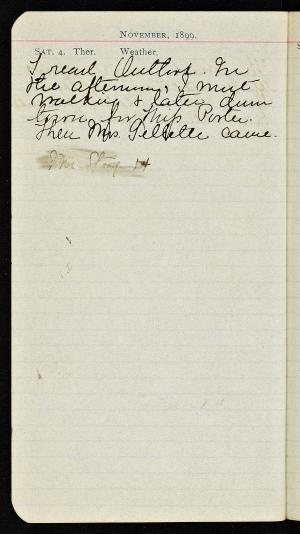 November, 1899.
Sat. 4. Ther. Weather.
I read Outlook. In
the afternoon, I went
walking & later down
town for Miss Porter.
Then Mrs. came.
14